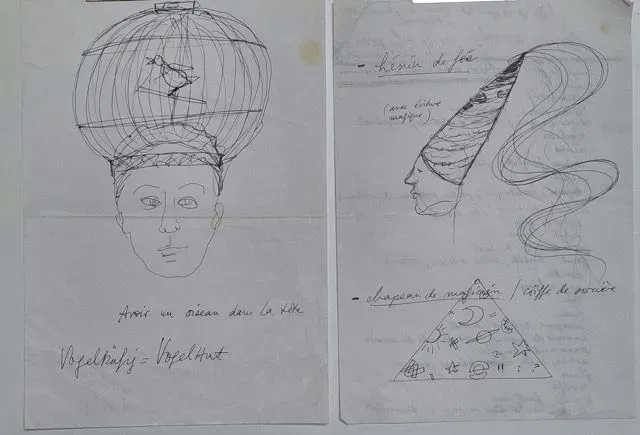 Avoir un oiseau dans la tête
Vogelkäfig = VogelHut
- hénin de fée
(avec écriture
magique)
- chapeau de magicien / coiffe de sorcière
= !! : ?